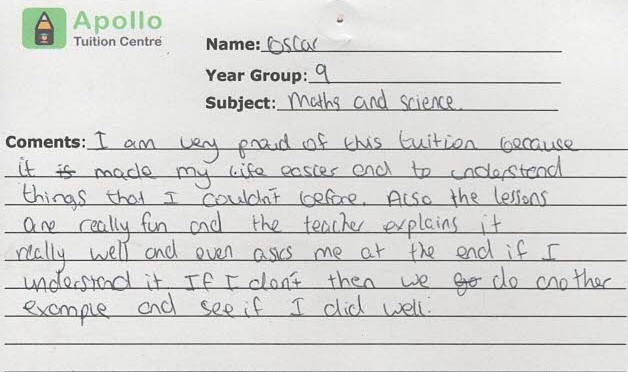 Apollo
Tuition Centre
Name: Oscar
Year Group: 9
Subject: Maths and science.
Coments: I am very proud of this tuition because
it is made my life easier and to understend
things that I couldn't before. Also the lessons
are really fun and the teacher explains it
really well and even asks me at the end if I
understand it. If I don't then we go do another
example and see if I did well.